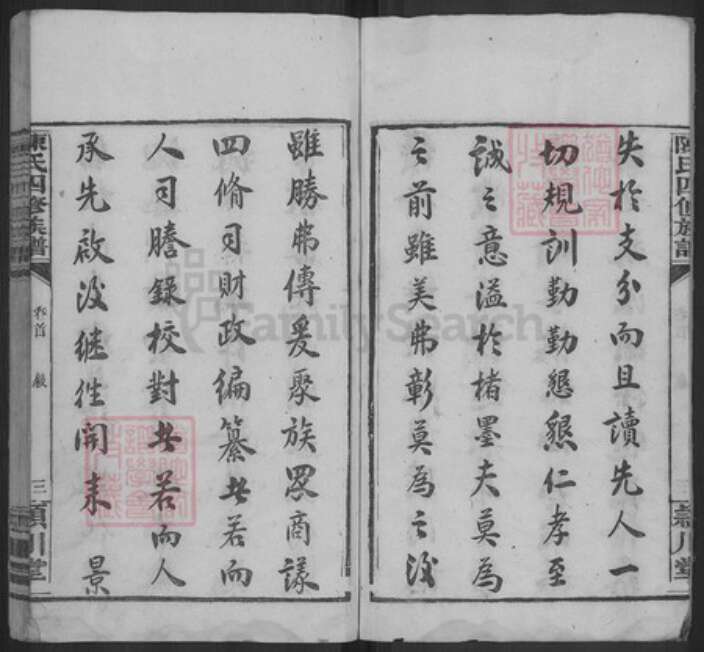 失於支分而且讀先人一
切規訓勤勤懇懇仁孝至
誠之意溢於楮墨夫莫為
之前雖美弗彰莫為之後
雖勝弗傳爰聚族衆商議
四脩司財政編纂者若而
人司謄錄校對者若而人
承先啟後繼往開來 景
陳氏四修族譜
卷首
三
潁川堂
陳氏四修族譜
三
潁川堂
FamilySearch